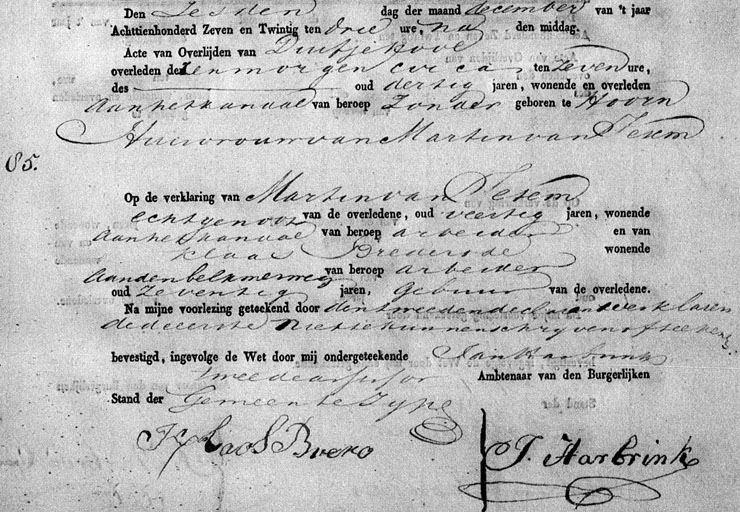 Den Zesden dag der maand december van 't jaar
Achttienhonderd Zeven en Twintig ten drie ure, na den middag.
Acte van Overlijden van Duifje Kool
overleden den Zesmorgen circa ten Zeven ure,
des oud dertig jaren, wonende en overleden
aan het kanaal van beroep Zonder geboren te Hoorn
Huisvrouw van Martin van Tesem
85.
Op de verklaring van Martin van Tesem
echtgenoot van de overledene, oud veertig jaren, wonende
aan het kanaal van beroep arbeider en van
Klaas Brederode wonende
aan den belkmerweg van beroep arbeider
oud Zeventig jaren, Gebuur van de overledene.
Na mijne voorlezing geteekend door den tweeden declarant verklaren
de de eerste niet te kunnen schryven of teekenen
bevestigd, ingevolge de Wet door mij ondergeteekende Jan Harbrink
tweede assessor Ambtenaar van den Burgerlijken
Stand der Gemeente Zype
Klaas
J. Harbrink